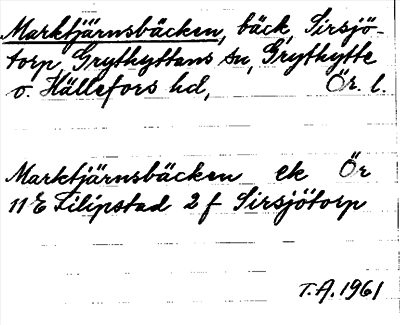 Marktjärnsbäcken, bäck, Sirsjö-
torp, Grythyttans sn, Grythytte
o. Hällefors hd, Ör. l.
Marktjärnsbäcken ek Ör
11E Filipstad 2f Sirsjötorp
T.A. 1961